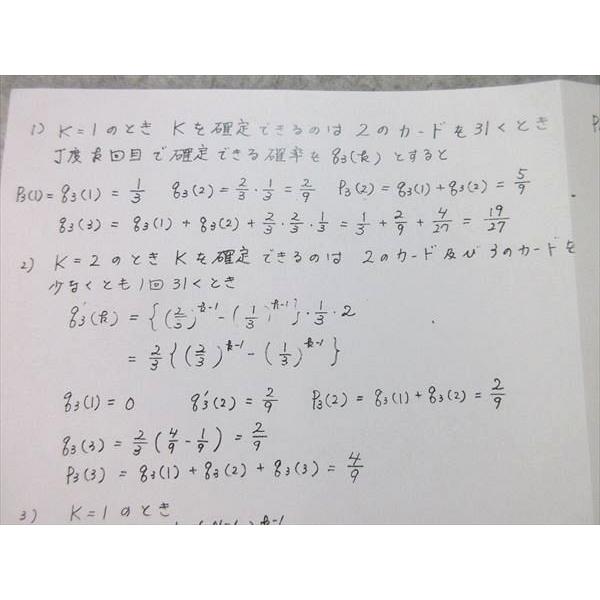 1) K=1のとき Kを確定できるのは 2のカードを引くとき
丁度k回目で確定できる確率を q3(k) とすると
P3(1)=q3(1) = 1/3 q3(2) = 2/3・1/3 = 2/9 P3(2) = q3(1)+q3(2) = 5/9
q3(3) = q3(1) + q3(2) + 2/3・2/3・1/3 = 1/3 + 2/9 + 4/27 = 19/27
2) K=2のとき Kを確定できるのは 2のカード及び3のカードを
少なくとも1回引くとき
q3'(k) = {(2/3)^k-1 - (1/3)^k-1}・1/3・2
= 2/3 {(2/3)^k-1 - (1/3)^k-1}
q3(1) = 0 q3'(2) = 2/9 P3(2) = q3(1)+q3(2) = 2/9
q3(3) = 2/3 (4/9 - 1/9) = 2/9
P3(3) = q3(1) + q3(2) + q3(3) = 4/9
3) K=1のとき